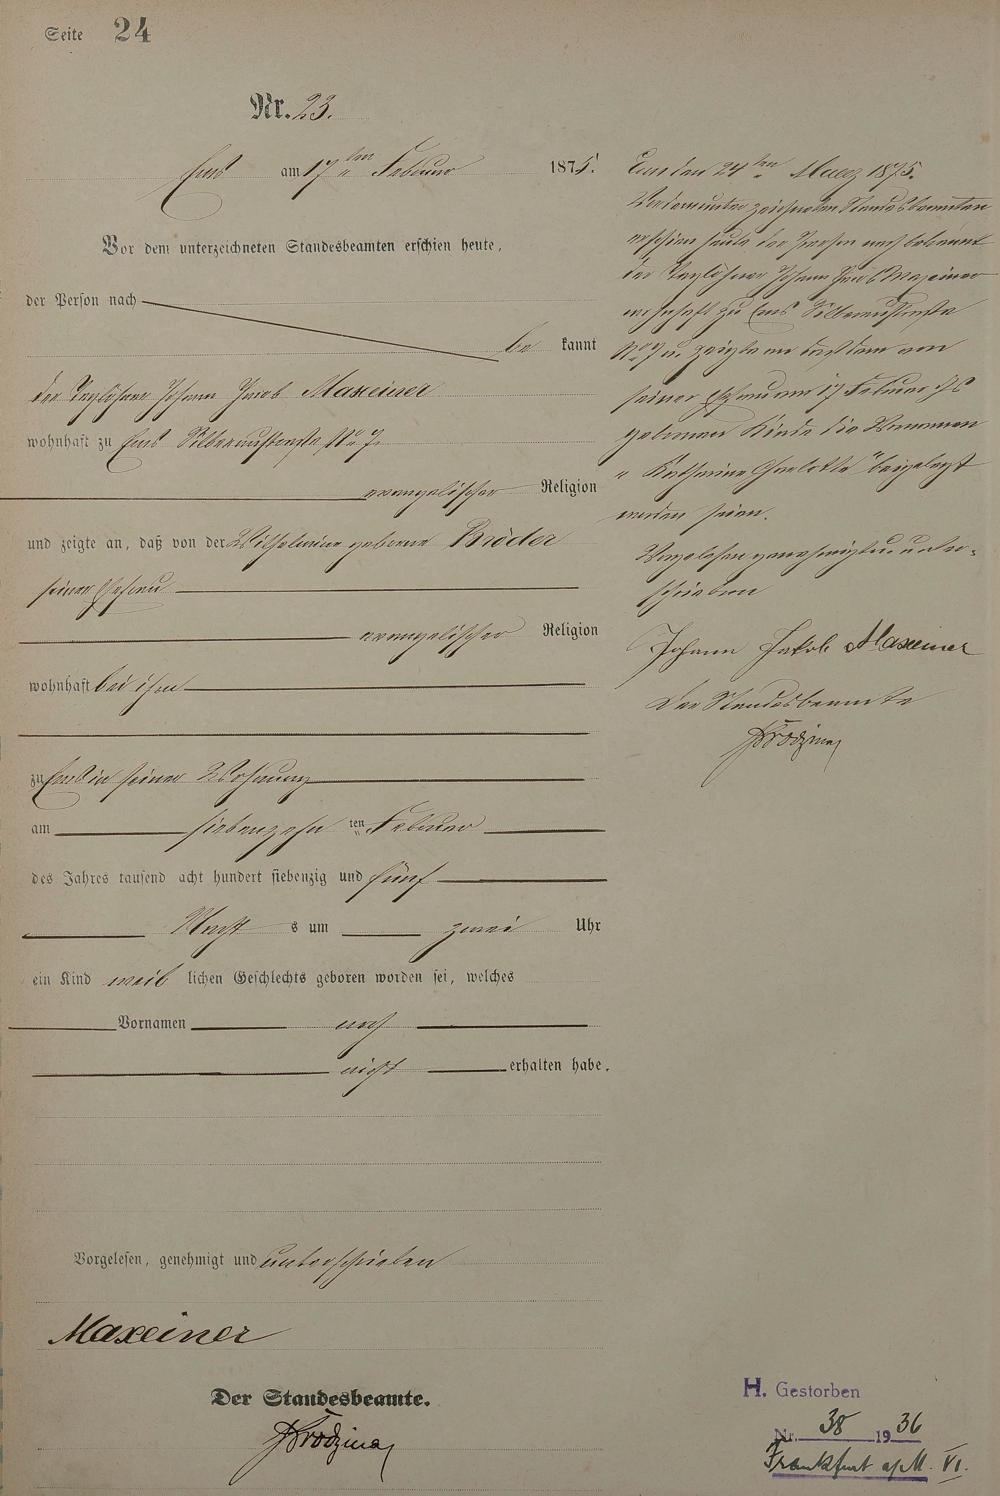 Seite 24
Nr. 23.
Ems am 17ten Februar 1875.
Vor dem unterzeichneten Standesbeamten erschien heute,
der Person nach
be kannt
der Taglöhner Johann Jacob Maxeiner
wohnhaft zu Ems Silberaustraße No 7.
evangelischer Religion
und zeigte an, daß von der Wilhelmine geborne Bröder
seiner Ehefrau
evangelischer Religion
wohnhaft bei ihm
zu Ems in seiner Wohnung
am siebenzehn ten Februar
des Jahres tausend acht hundert siebenzig und fünf
Nacht s um zwei Uhr
ein Kind weib lichen Geschlechts geboren worden sei, welches
Vornamen noch
nicht erhalten habe.
Vorgelesen, genehmigt und unterschrieben
Maxeiner
Der Standesbeamte.
Brodzina
Ems den 24ten Maerz 1875.
Vor dem unterzeichneten Standesbeamten
erschien heute der Person nach bekannt
der Taglöhner Johann Jacob Maxeiner
wohnhaft zu Ems Silberaustraße
No 7 u. zeigte an daß dem von
seiner Ehefrau am 17 Februar
gebornen Kinde die Vornamen
"Katharine Charlotte" beigelegt
worden seien.
Vorgelesen genehmigt u. unter-
schrieben
Johann Jakob Maxeiner
Der Standesbeamte
Brodzina
H. Gestorben
Nr. 38 1936
Frankfurt a/M. VI.